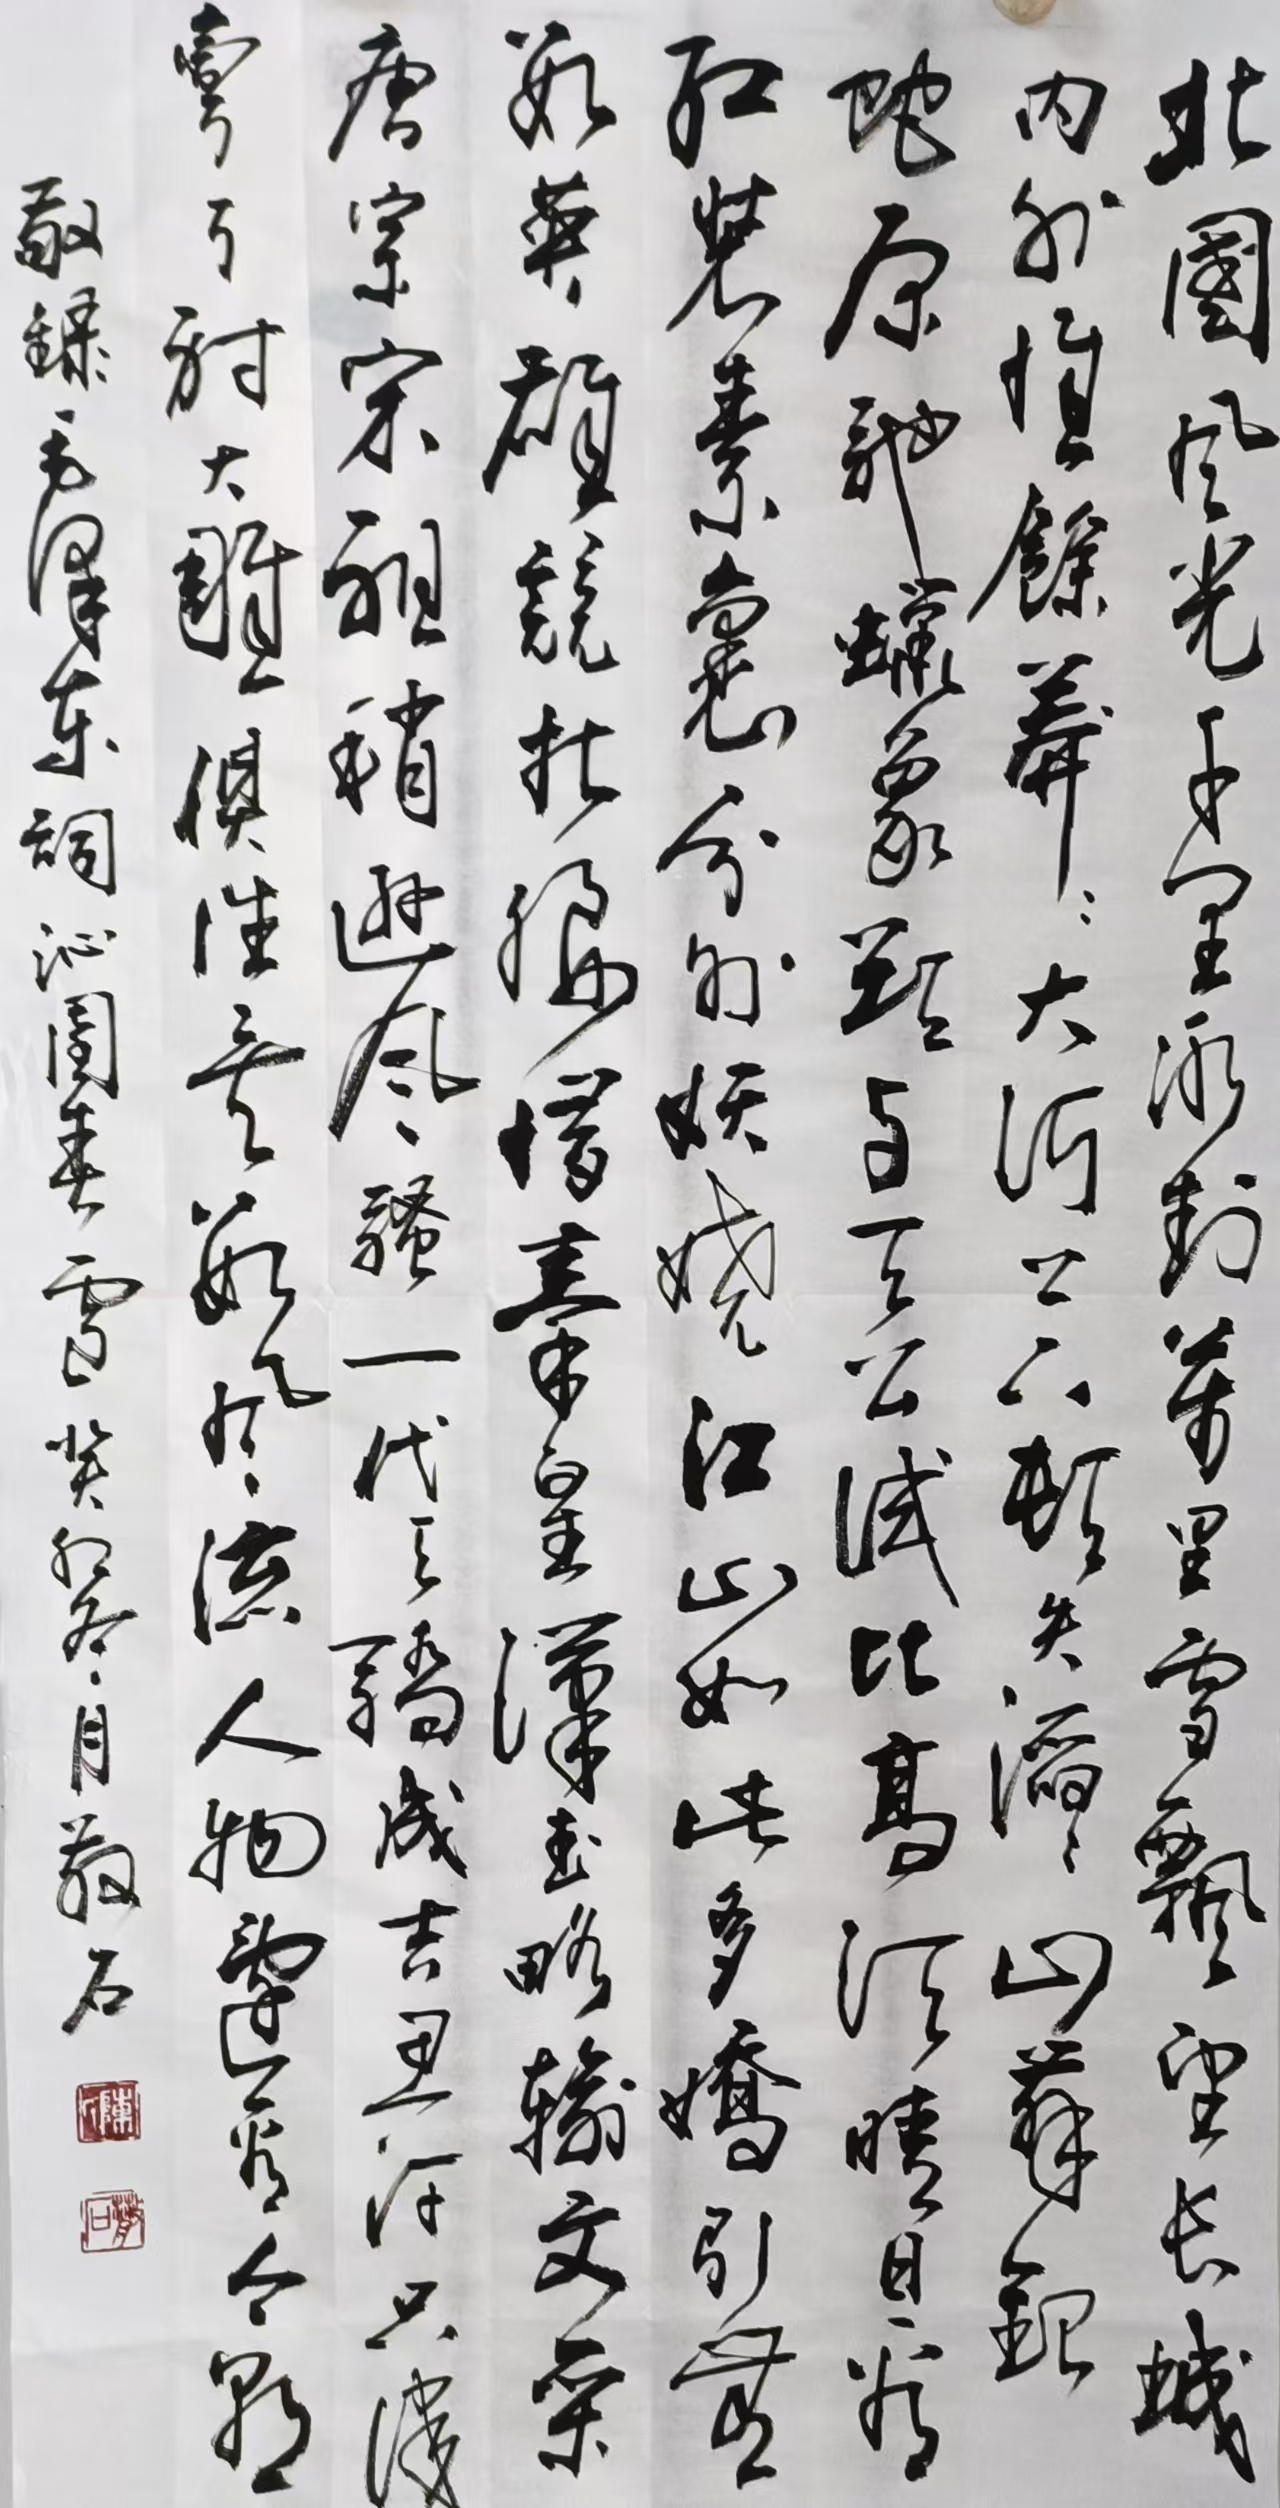 北國风光千里冰封萬里雪飄望长城
内外惟餘莽〻大河上下頓失滔〻山舞銀
蛇原馳蠟象欲与天公试比高须晴日看
红裝素裹分外妖娆江山如此多嬌引無
數英雄競折腰惜秦皇漢武略输文采
唐宗宋祖稍遜风骚一代天驕成吉思汗只识
彎弓射大雕俱往矣數风流人物還看今朝
敬録毛泽东词沁園春雪癸卯冬月石